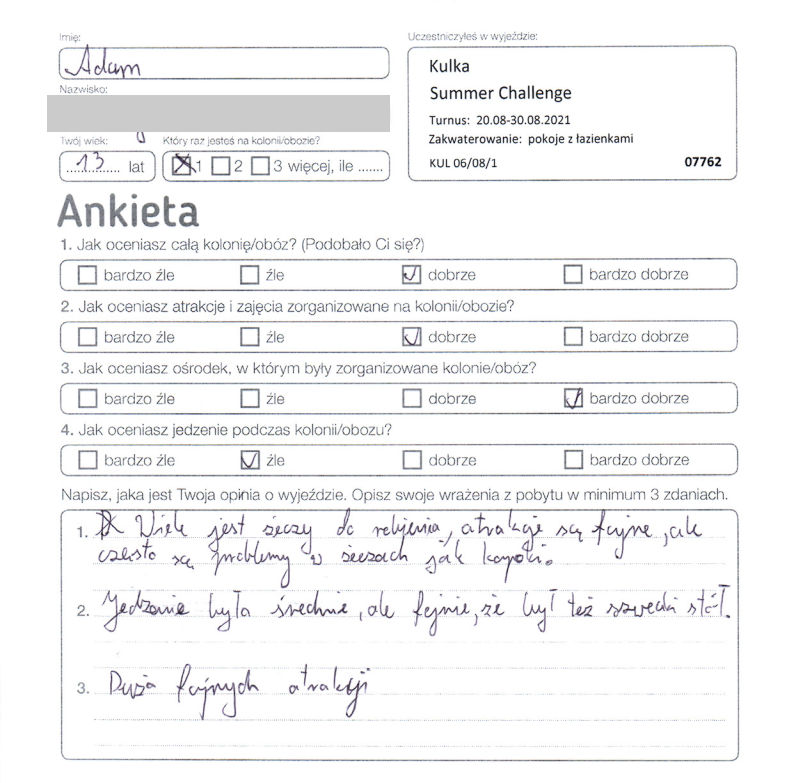 Imię:
Uczestniczyłeś w wyjeździe:
Adam
Kulka
Summer Challenge
Turnus: 20.08-30.08.2021
Zakwaterowanie: pokoje z łazienkami
KUL 06/08/1 07762
Nazwisko:
Twój wiek: Który raz jesteś na kolonii/obozie?
13 lat 1 2 3 więcej, ile .......
Ankieta
1. Jak oceniasz całą kolonię/obóz? (Podobało Ci się?)
bardzo źle źle dobrze bardzo dobrze
2. Jak oceniasz atrakcje i zajęcia zorganizowane na kolonii/obozie?
bardzo źle źle dobrze bardzo dobrze
3. Jak oceniasz ośrodek, w którym były zorganizowane kolonie/obóz?
bardzo źle źle dobrze bardzo dobrze
4. Jak oceniasz jedzenie podczas kolonii/obozu?
bardzo źle źle dobrze bardzo dobrze
Napisz, jaka jest Twoja opinia o wyjeździe. Opisz swoje wrażenia z pobytu w minimum 3 zdaniach.
1. Wiele jest żeczy do, atrakcje są fajne, ale
często są problemy w żeczach jak
2. Jedzenie była średnie, ale fajnie, że był też szwedki stół.
3. Duża fajnych atrakcji